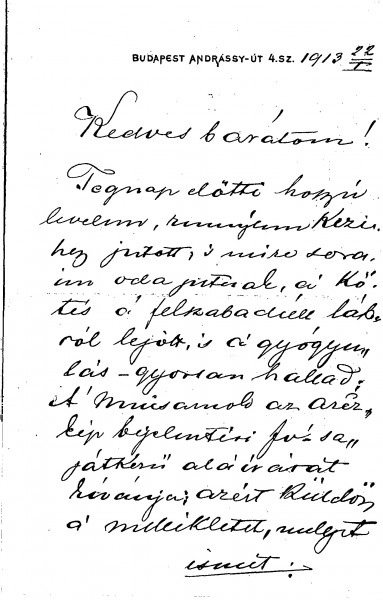 BUDAPEST ANDRÁSSY-ÚT 4.SZ. 1913 22/I
Kedves barátom!
Tegnap előtti hosszú
levelem, remélem Kezei„
hez jutott, s mire sora„
im oda jutnak, a' Kö„
tés a' felszabadult láb„
ról lejött, is a' gyógyu„
lás – gyorsan hallad;
A' az arcz„
kép bejelentési ív sa„
játkezű aláírását
kívánja; azért Küldöm
a' mellékletet, melyet
ismét: